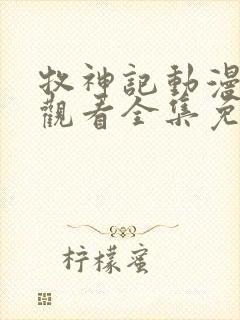 牧神記動漫
觀看全集免
柠檬蜜